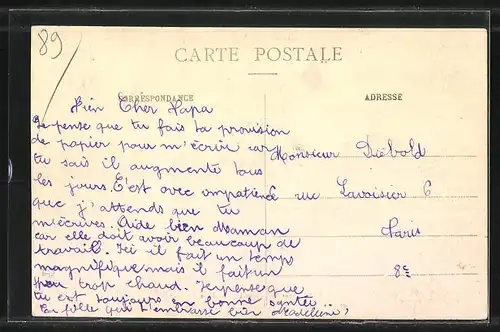 89
CARTE POSTALE
CORRESPONDANCE
ADRESSE
Bien Cher Papa
Je pense que tu fais ta provision
de papier pour m'écrire car
tu sais il augmente tous
les jours. C'est avec impatience
que j'attends que tu
m'écrives. Aide bien maman
car elle doit avoir beaucoup de
travail. Ici il fait un temps
magnifique mais il fait un
peu trop chaud. Je pense que
tu est toujours en bonne santée
Ta fille qui t'embrasse bien Madeleine
Monsieur Diébold
6 rue Lavoisier 6
Paris
8e